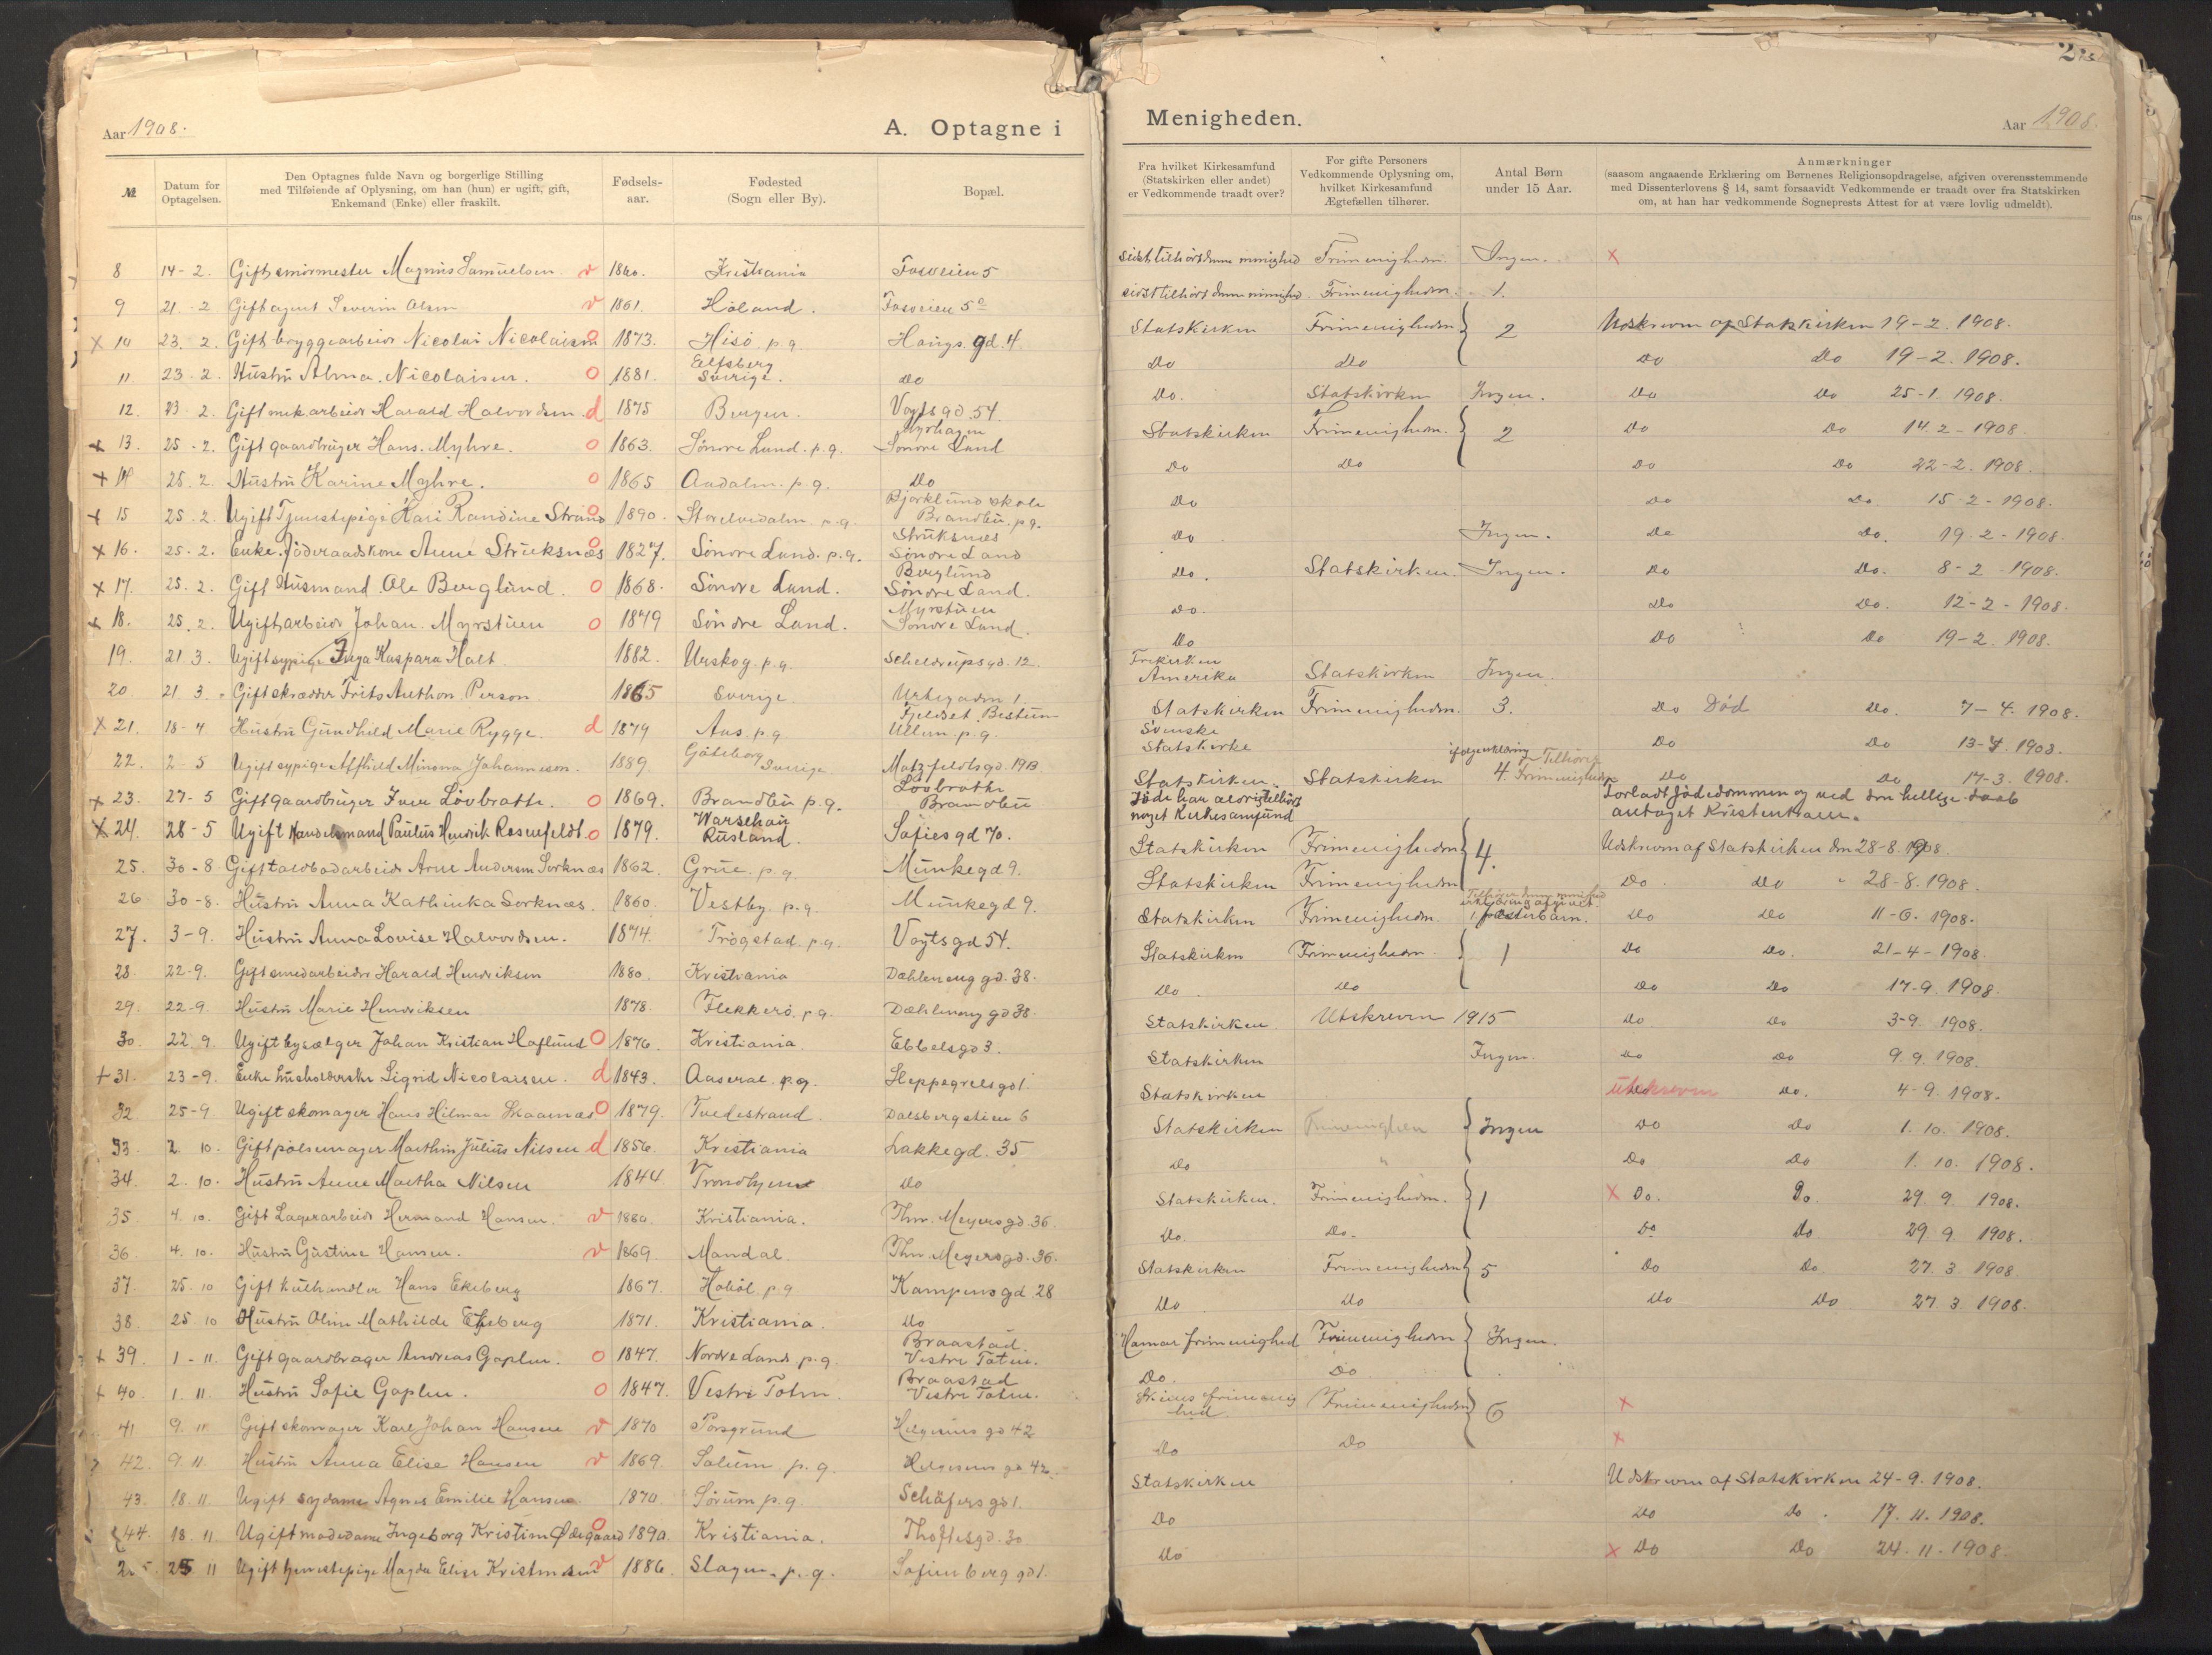 Aar 1908.
A. Optagne i
№
Datum for Optagelsen.
Den Optagnes fulde Navn og borgerlige Stilling
med Tilføiende af Oplysning, om han (hun) er ugift, gift,
Enkemand (Enke) eller fraskilt.
Fødsels-
aar.
Fødested
(Sogn eller By).
Bopæl.
8 14-2. Gift smørmester Magnus Samuelsen v 1860. Kristiania Fosveien 5
9 21-2 Gift agent Severin Olsen v 1861. Høland. Fosveien 5
x 10 23.2. Gift bryggearbeider Nicolai Nicolaisen o 1873. Hisø p.g. Haugs.gd.4
11 23.2. Hustru Alma Nicolaisen. o 1881. Elfsberg Sverige. Do
12. 23 2. Gift mek arbeider Harald Halvordsen d 1875 Bergen. Vogts gd. 54.
x 13. 25-2. Gift gaardbruger Hans Myhre. o 1863. Søndre Land. p.g. Myrhagen Søndre Land
x 14 25.2. Hustru Karine Myhre. o 1865 Aadalen. p.g. Do
x 15 25-2. Ugift Tjenestepige Kari Randine Strand o 1890. Storelvedalen p.g. Bjørklund skole Brandbu p.g.
x 16. 25-2. Enke. Jøderaadskone Anne Struksnæs o 1827. Søndre Land. p.g. Struksnæs Søndre Land
x 17. 25.2. Gift Husmand Ole Berglund. o 1868. Søndre Land. Berglund Søndre Land.
x 18. 25.2. Ugift arbeider Johan Myrstuen o 1879 Søndre Land. Myrstuen Søndre Land.
19. 21 3. Ugift sypige Inga Kaspara Holt. 1882. Urskog. p.g. Scheldrups gd. 12.
20. 21 3. Gift skrædder Frits Anthon Person 1865 Sverige. Urtegaden 1
x 21. 18-4 Hustru Gundhild Marie Rygge. d 1879 Aas. p.g. Fjeldset Bestum Ullern. p.g.
22. 2-5 Ugift sypige Affhild Minona Johanneson. 1889. Gøteborg Sverige
x 23. 27-5 Gift gaardbruger Iver Løvbrotte. o 1869. Brandbu p.g. Løvbrotte Brandbu
x 24. 28-5 Ugift Handelsmand Paulus Hendrik Rosenfeldt. o 1879. Warschau Rusland. Sofies gd 70.
25. 30-8 Gift Arne Andersen Sorknæs 1862. Grue. p.g. Munkegd 9.
26 30-8. Hustru Anna Kathinka Sorknæs. 1860. Vestby. p.g. Munkegd 9.
27. 3-9. Hustru Anna Lovise Halvordsen. 1874. Trøgstad. p.g. Vogts gd 54.
28. 22-9. Gift smedarbeider Harald Hendriksen 1880. Kristiania Dæhleneng gd. 38.
29. 22-9. Hustru Marie Hendriksen 1878. Flekkerø. p.g. Dæhleneng gd 38.
30. 22.9. Ugift bysælger Johan Kristian Haflund o 1876. Kristiania. Ebbelsgd 3.
+ 31. 23-9. Enke husholderske Sigrid Nicolaisen. d 1843. Aaseral. p.g. Steppegrels gd 1.
32 25-9 Ugift skomager Hans Hilmar o 1879. Tvedestrand Dalsbergstien 6
33. 2 10. Gift pølsemager Marthin Julius Nilsen d 1856. Kristiania Lakkegd. 35
34. 2.10. Hustru Anne Martha Nilsen 1844 Trondhjem Do
35 4.10. Gift Lagerarbeider Hermand Hansen. v 1860. Kristiania. Thv. Meyers gd. 36.
36. 4.10. Hustru Gustine Hansen. v 1869. Mandal. Thv. Meyers gd. 36.
37. 25.10 Gift kulhandler Hans Ekeberg 1867. Hobøl. p.g Kampens gd 28
38. 25.10 Hustru Oline Mathilde Ekeberg 1871. Kristiania. Do
+ 39. 1-11. Gift gaardbruger Andreas Gaplen. o 1847. Nordre Land. p.g. Braastad. Vestre Toten.
+ 40. 1.11. Hustru Sofie Gaplen. o 1847. Vestre Toten. Braastad Vestre Toten.
41 9.11 Gift skomager Karl Johan Hansen v 1870 Porsgrund Helgesens gd 42
42. 9.11. Hustru Anna Elise Hansen v 1869. Solum p.g. Helgesens gd 42.
43. 18.11 Ugift sydame Agnes Emilie Hansen. 1870. Sørum p.g. Schäfers gd 1.
44. 18.11. Ugift modedame Ingeborg Kristine Ødegaard o 1890. Kristiania. Thoftesgd. 30
25 11 Ugift tjenestepige Magda Elise Kristensen v 1886. Slagen. p.g. Sofienberg gd 1.
Menigheden.
Aar 1908.
Fra hvilket Kirkesamfund
(Statskirken eller andet)
er Vedkommende traadt over?
For gifte Personers
Vedkommende Oplysning om,
hvilket Kirkesamfund
Ægtefællen tilhører.
Antal Børn
under 15 Aar.
Anmærkninger
(saasom angaaende Erklæring om Børnenes Religionsopdragelse, afgiven overensstemmende
med Dissenterlovens § 14, samt forsaavidt Vedkommende er traadt over fra Statskirken
om, at han har vedkommende Sogneprests Attest for at være lovlig udmeldt).
sidst tilhørt denne menighed Frimenigheden. Ingen. x
sidst tilhørt denne menighed. Frimenigheden. 1.
Statskirken Frimenigheden } 2 Udskreven af Statskirken 19-2.1908.
Do Do Do Do 19-2.1908.
Do. Statskirken Ingen. Do Do 25-1.1908.
Statskirken Frimenigheden. } 2 Do Do 14.2-1908.
Do Do Do Do 22-2.1908.
Do Do Do. 15.2-1908.
Do Ingen. Do Do. 19.2-1908.
Do. Statskirken. Ingen. Do Do. 8-2 1908.
Do. Do Do. 12-2-1908.
Do Do Do 19-2.1908.
Frikirken
Amerika Statskirken Ingen.
Statskirken Frimenigheden. 3. Do Død Do. 7-4.1908.
Svenske
Statskirke Do Do 13-4.1908.
Statskirken. Statskirken 4. Tilhører Frimenigheden Do Do 17-3.1908.
Jøde har aldrig tilhørt
noget Kirkesamfund Forladt Jødedommen og ved den hellige daab
antaget Kristentroen.
Statskirken Frimenigheden } 4. Udskreven af Statskirken den 28-8.1908.
Statskirken Frimenigheden Do. Do 28-8.1908.
Statskirken Frimenigheden. Tilhører denne menighed erklæring afgivet. 1. pleiebarn. Do Do 11-6.1908.
Statskirken Frimenigheden } 1 Do Do. 21-4-1908.
Do. Do Do Do 17-9.1908.
Statskirken. Utskreven 1915 Do Do 3-9.1908.
Statskirken Ingen. Do Do 9.9.1908.
Statskirken Utskreven Do. 4-9.1908.
Statskirken Frimenigheden { Ingen Do Do 1.10.1908.
Do " Do Do 1.10.1908.
Statskirken. Frimenigheden. } 1 x Do. Do. 29.9.1908.
Do. Do. Do Do 29.9.1908.
Statskirken Frimenigheden } 5 Do Do. 27.3.1908
Do Do Do Do 27.3.1908.
Hamar frimenighed Frimenigheden } Ingen.
Do. Do
Skiens frimenig
hed Frimenigheden } 6 x
Do Do x
Statskirken Udskreven af Statskirken 24-9.1908.
Do Do Do. 17.11.1908.
Do x Do Do 24.11.1908.